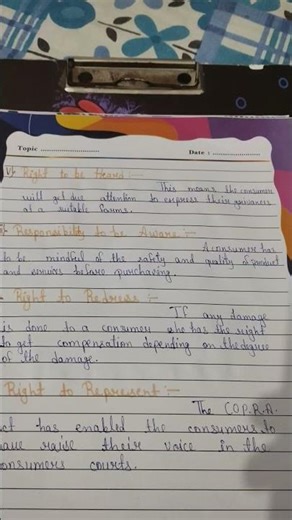 Topic ........................ Date : ....................
Right to be Heard :-
This means the consumer
will get due attention to express their grievances
at a suitable forums.
Responsibility to be Aware :-
A consumer has
to be mindful of the safety and quality of product
and services before purchasing.
Right to Redress :-
If any damage
is done to a consumer, who has the right
to get compensation depending on the degree
of the damage.
Right to Represent :-
The C.O.P.R.A.
ct has enabled the consumers to
have raise their voice in the
onsumers courts.